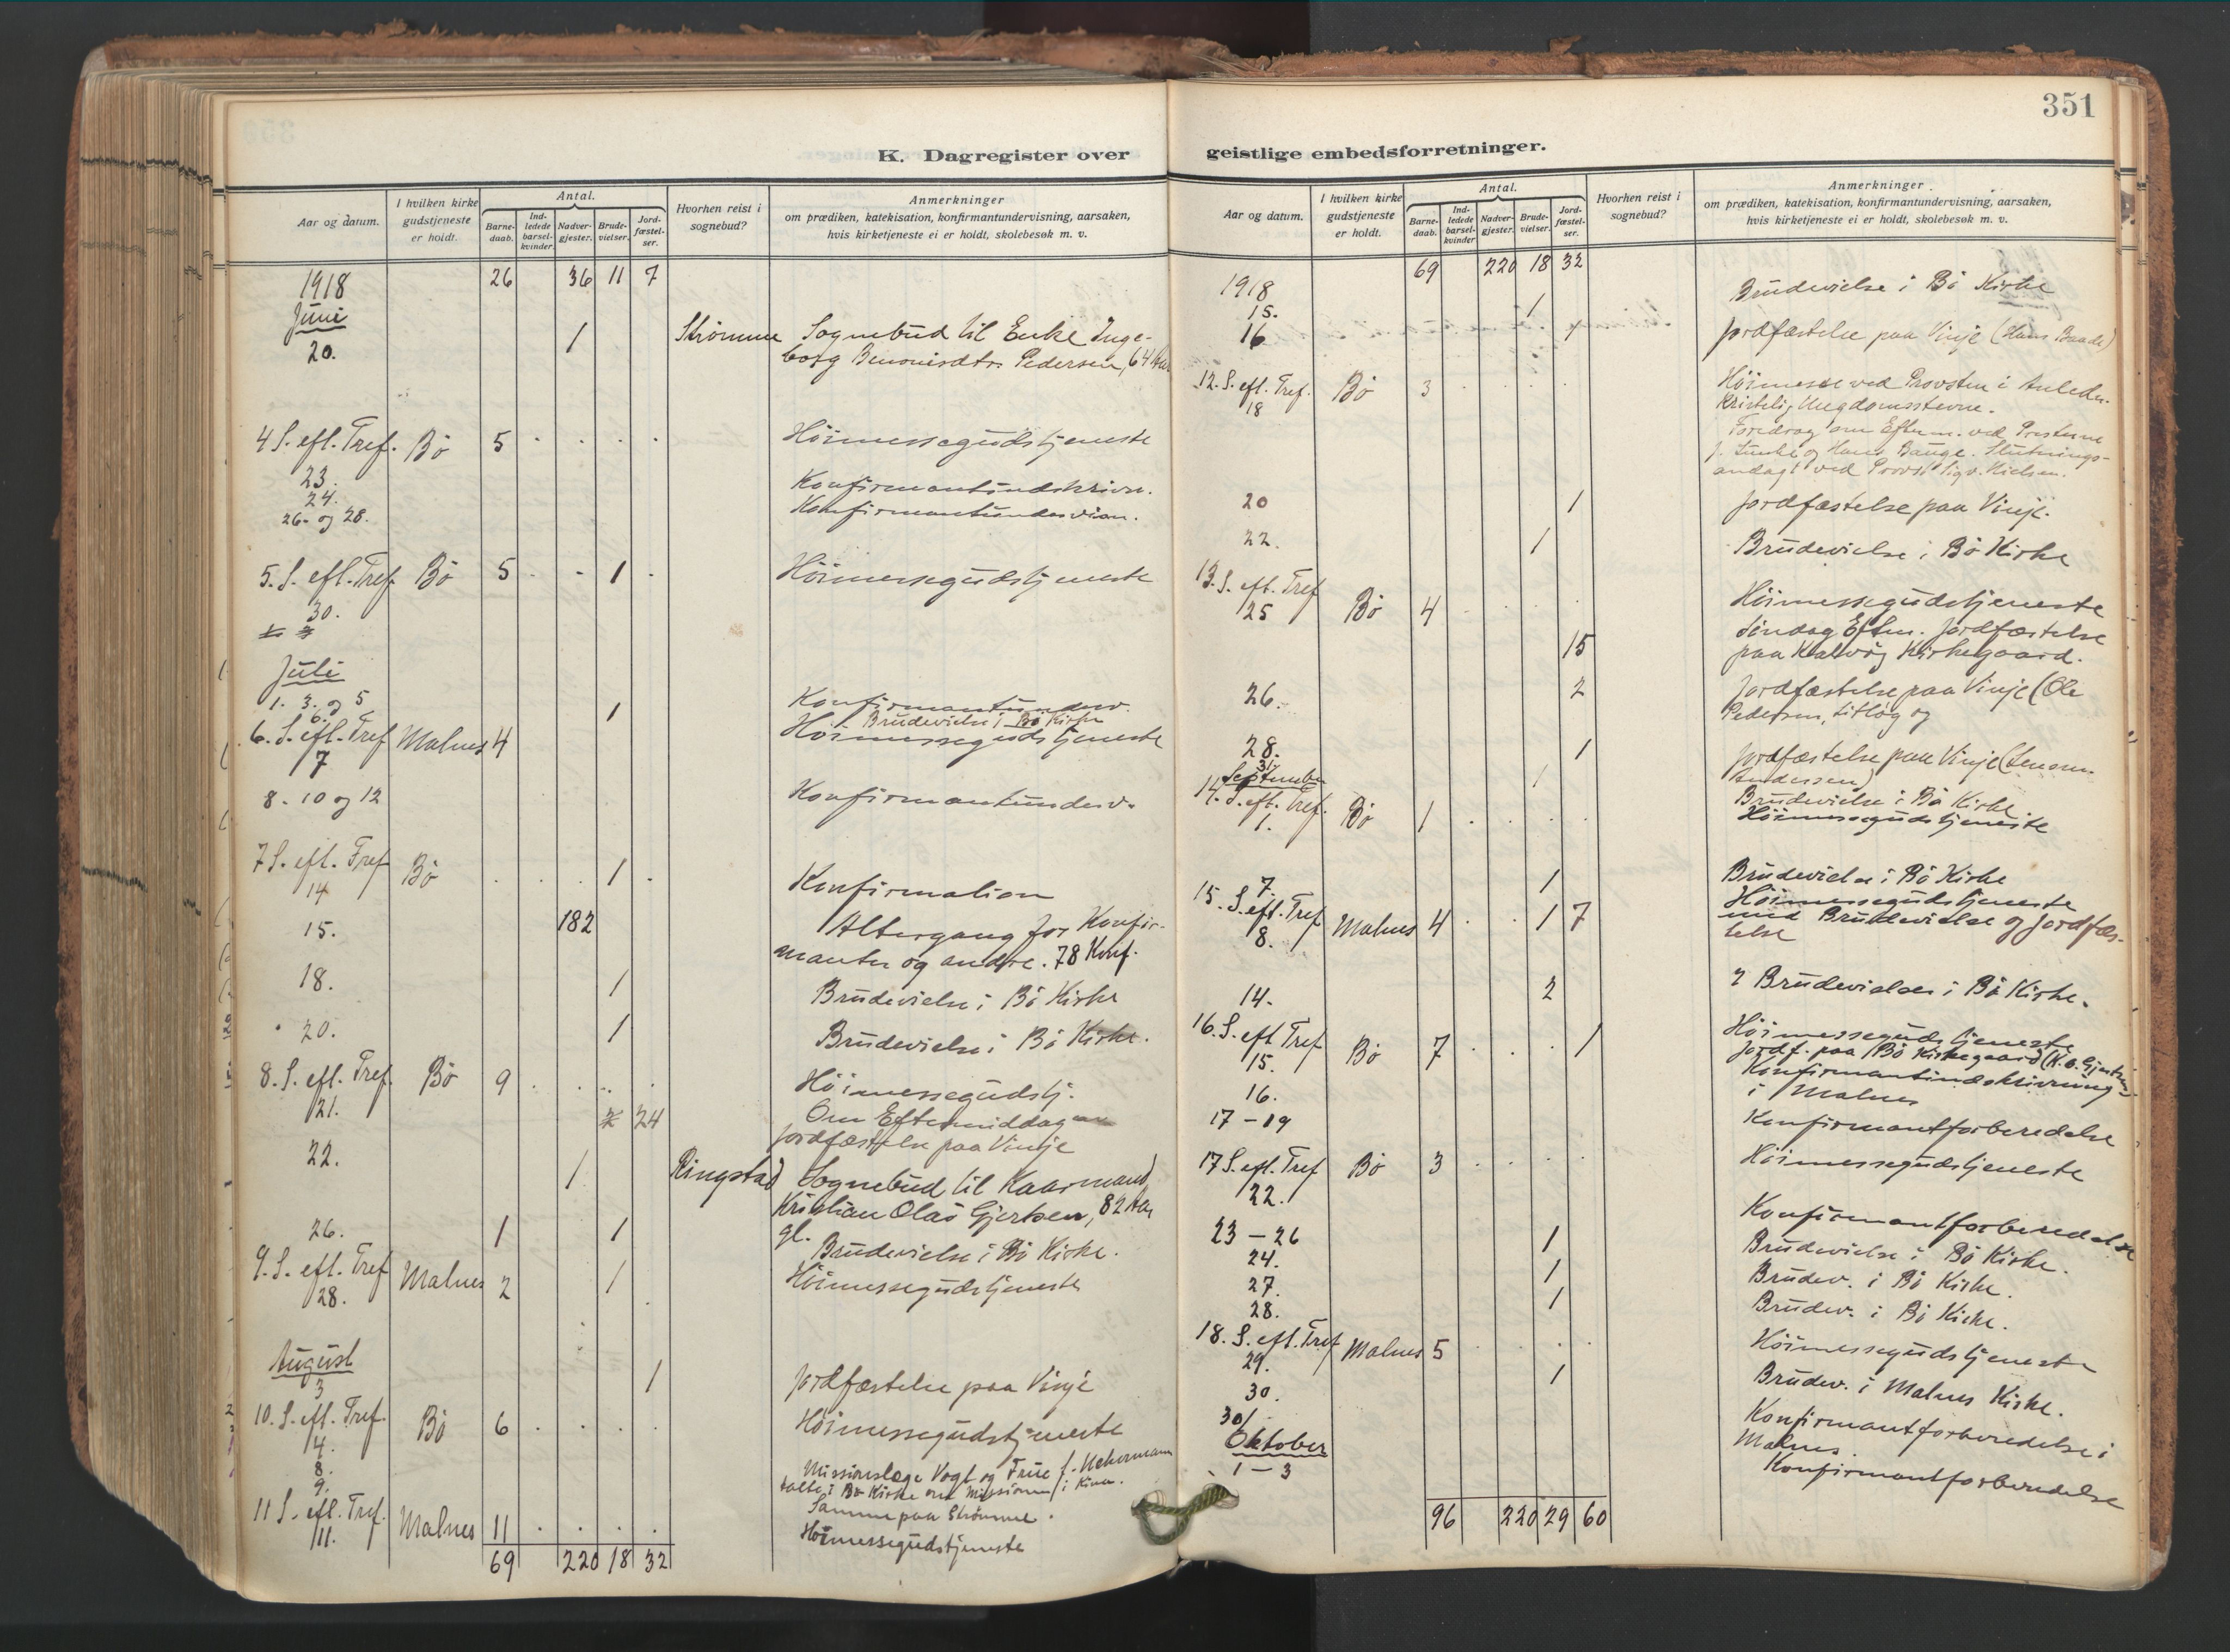 351
K. Dagregister over
Aar og datum.
I hvilken kirke gudstjeneste er holdt.
Antal.
Barne-daab.
Ind-ledede barsel-kvinder.
Nadver-gjester.
Brude-vielser.
Jord-fæstel-ser.
Hvorhen reist i sognebud?
Anmerkninger
om prædiken, katekisation, konfirmantundervisning, aarsaken,
hvis kirketjeneste ei er holdt, skolebesøk m. v.
1918 26 36 11 7
Juni
20. 1 Strømme Sognebud til Enke Inge-
borg Benonisdtr. Pedersen, 64 Aar
4 S. efl. Tref. Bö 5 . . . . Höimessegudstjeneste
23.
24. Konfirmantindskrivn.
26. og 28. Konfirmantundervisn.
5. S. efl. Tref. Bö 5 . . 1 . Höimessegudstjeneste
30.
Juli
1. 3. og 5 Konfirmantunderv.
6. 1 Brudevielse i Bö Kirke
6. S. efl. Tref Malnes 4 Höimessegudstjeneste
7
8. 10 og 12 Konfirmantunderv.
7 S. efl. Tref Bö . . . 1 . Konfirmation
14
15. 182 Altergang for Konfir-
manter og andre. 78 Konf.
18. 1 Brudevielse i Bö Kirke
20. 1 Brudevielse i Bö Kirke.
8. S. efl. Tref. Bö 9 . . . . Höimessegudstj.
21. 24 Om Eftermiddagen
jordfæstelse paa Vinje
22. 1 Ringstad Sognebud til Kaarmand
Kristian Olai Gjertsen, 82 Aar
gl.
26. 1 1 Brudevielse i Bö Kirke.
9. S. efl. Tref Malnes 2 1 . Höimessegudstjeneste
28.
August
3 1 jordfæstelse paa Vinje
10. S. efl. Tref. Bö 6 . . . . Höimessegudstjeneste
4.
8. Missionslæge Vogt og Frue f.
talte i Bö Kirke om Missionen i Kina.
9. Samme paa Strömme.
11 S. efl. Tref. Malnes 11 . . . . Höimessegudstjeneste
11.
69 220 18 32
geistlige embedsforretninger.
Aar og datum.
I hvilken kirke gudstjeneste er holdt.
Antal.
Barne-daab.
Ind-ledede barsel-kvinder
Nadver-gjester.
Brude-vielser.
Jord-fæstel-ser.
Hvorhen reist i sognebud?
Anmerkninger
om prædiken, katekisation, konfirmantundervisning, aarsaken,
hvis kirketjeneste ei er holdt, skolebesøk m. v.
69 220 18 32
1918
15. 1 Brudevielse i Bö Kirke
16 jordfæstelse paa Vinje (Hans
12. S. efl. Tref. Bö 3 . . . . Höimesse ved Provsten i Anledn.
18 Kristelig Ungdomsstevne.
Foredrag om Efterm. ved Presterne
og Hans Bauge. Slutnings-
andagt ved Provst Sigv. Nielsen.
20 1 jordfæstelse paa Vinje.
22. 1 Brudevielse i Bö Kirke
13. S. eft. Tref Bö 4 . . . . Höimessegudstjeneste
25
15 Söndag Eftm. jordfæstelse
paa Kalvåg Kirkegaard.
26. 2 jordfæstelse paa Vinje (Ole
Pedersen, og
28. 1 jordfæstelse paa Vinje
Andersen)
31. 1 Brudevielse i Bö Kirke
September
14. S. eft. Tref. Bö 1 . . . . Höimessegudstjeneste
1.
7. 1 Brudevielse i Bö Kirke
15. S. eft. Tref Malnes 4 . . 1 7 Höimessegudstjeneste
8. med Brudevielse og jordfæs-
telse
14. 2 2 Brudevielser i Bö Kirke.
16. S. eft Tref Bö 7 . . . 1 Höimessegudstjeneste
15. jordf. paa Bö Kirkegaard (K. O. Gjertsen
16. Konfirmantindskrivning
i Malnes
17 – 19 Konfirmantforberedelse
17 S. eft. Tref Bö 3 . . . . Höimessegudstjeneste
22.
23 – 26 Konfirmantforberedelse
24. 1 Brudevielse i Bö Kirke.
27. 1 Brudev. i Bö Kirke.
28. 1 Brudev. i Bö Kirke.
18. S. eft. Tref Malnes 5 . . . . Höimessegudstjeneste
29.
30. 1 Brudev. i Malnes Kirke.
30/ Konfirmantforberedelse i
Malnes.
Oktober
1 – 3 Konfirmantforberedelse
96 220 29 60